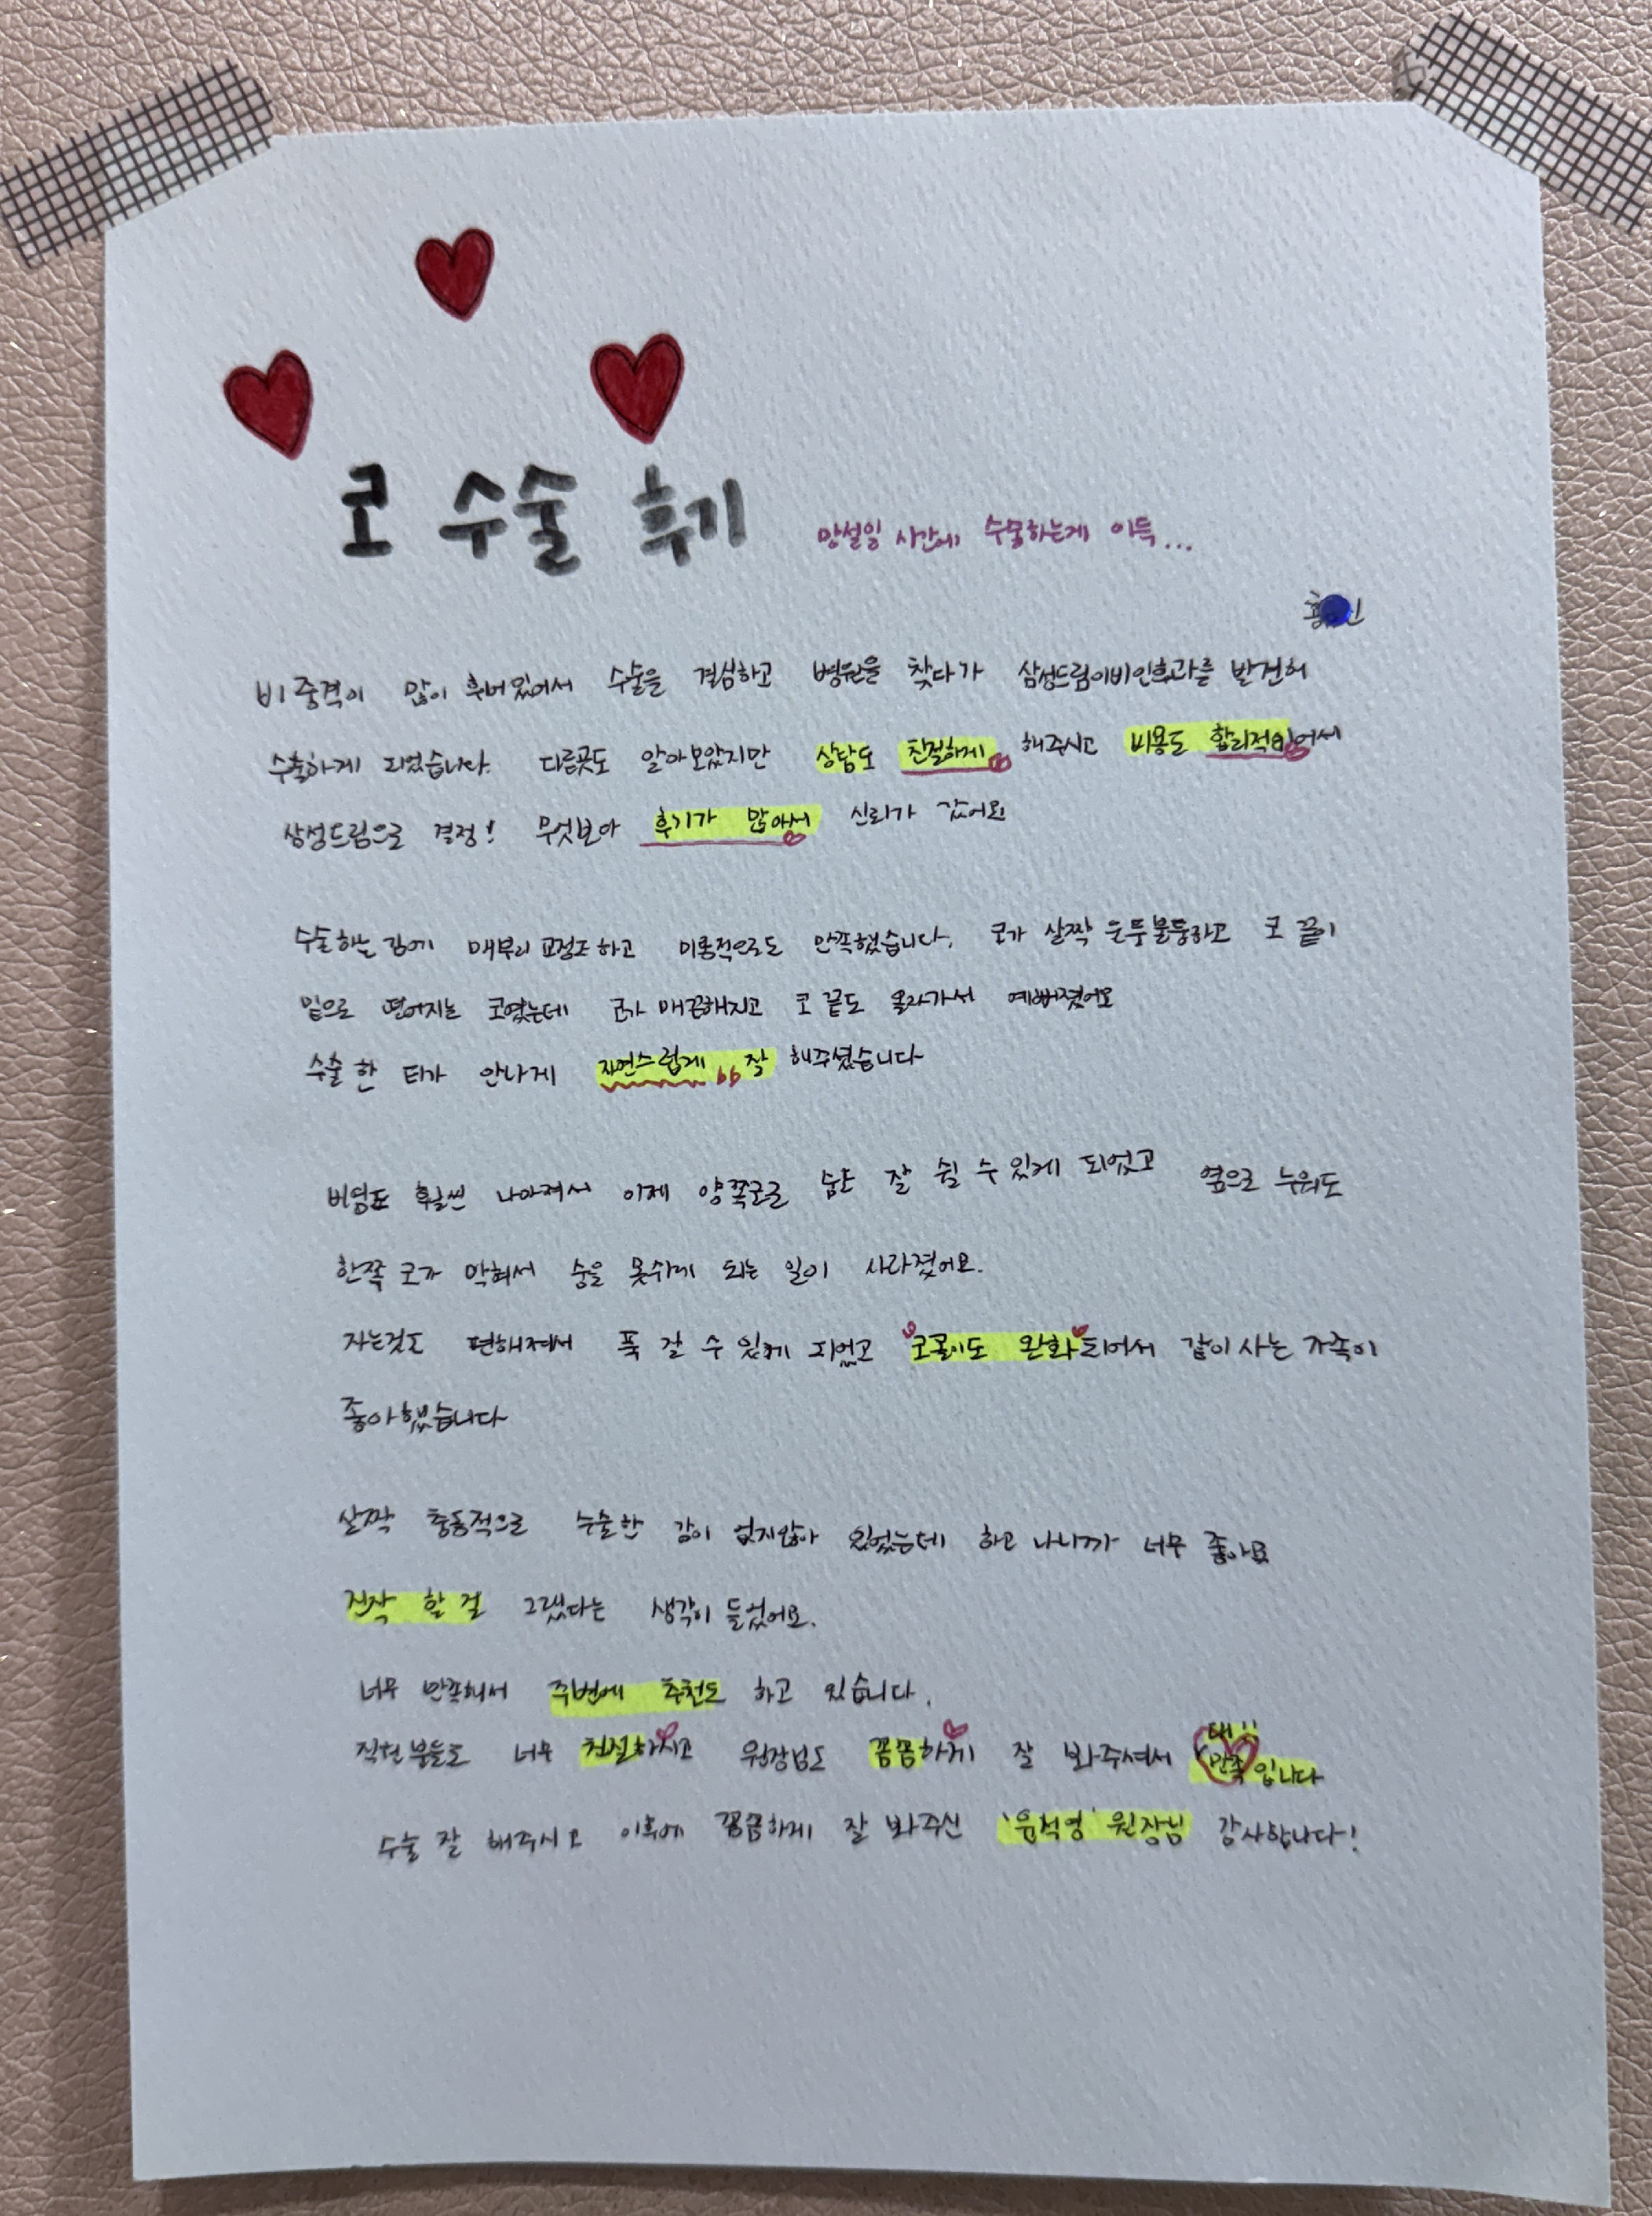 코 수술 후기
망설일 시간에 수술하는게 이득...
비중격이 많이 휘어있어서 수술을 결심하고 병원을 찾다가 삼성드림이비인후과를 발견해
수술하게 되었습니다. 다른곳도 알아보았지만 상담도 친절하게 해주시고 비용도 합리적이어서
삼성드림으로 결정! 무엇보다 후기가 많아서 신뢰가 갔어요
수술하는 김에 매부리 교정도 하고 미용적으로도 만족했습니다. 코가 살짝 울퉁불퉁하고 코 끝이
밑으로 떨어지는 코였는데 코가 매끈해지고 코 끝도 올라가서 예뻐졌어요
수술 한 티가 안나게 자연스럽게 잘 해주셨습니다
비염도 훨씬 나아져서 이제 양쪽코로 숨도 잘 쉴 수 있게 되었고 옆으로 누워도
한쪽 코가 막혀서 숨을 못쉬게 되는 일이 사라졌어요.
자는것도 편해져서 푹 잘 수 있게 되었고 코골이도 완화되어서 같이 사는 가족이
좋아했습니다
살짝 충동적으로 수술한 감이 없지않아 있었는데 하고 나니까 너무 좋아요
진작 할 걸 그랬다는 생각이 들었어요.
너무 만족해서 주변에 추천도 하고 있습니다.
직원분들도 너무 친절하시고 원장님도 꼼꼼하게 잘 봐주셔서 대!! 만족입니다
수술 잘 해주시고 이후에 꼼꼼하게 잘 봐주신 '윤석영' 원장님 감사합니다!